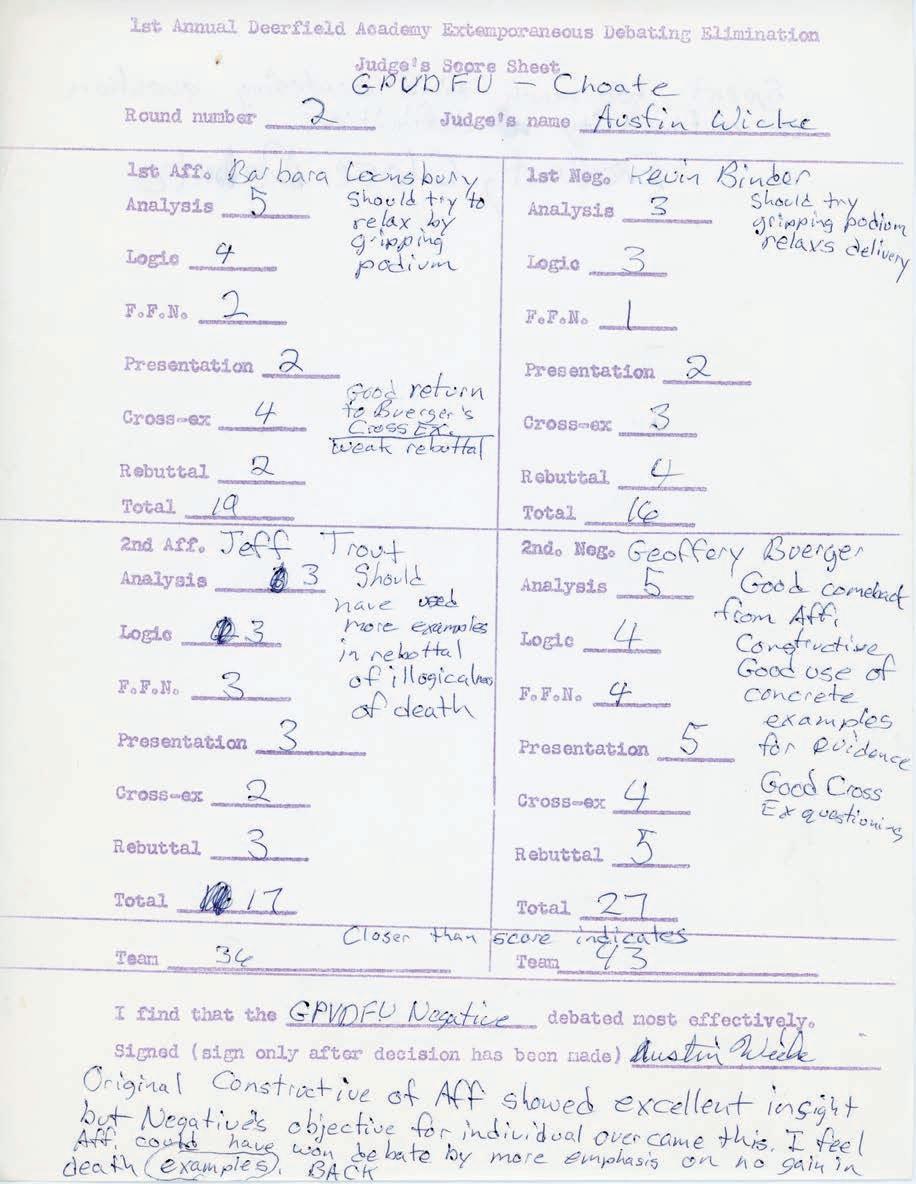 1st Annual Deerfield Academy Extemporaneous Debating Elimination
Judge's Score Sheet
GPVDFU - Choate
Round number 2 Judge's name Austin Wicke
1st Aff. Barbara Lounsbury
Analysis 5
Should try to
relax by
gripping
podium
Logic 4
F.F.N. 2
Presentation 2
Cross-ex 4
Good return
to Buerger's
Cross Ex.
weak rebuttal
Rebuttal 2
Total 19
1st Neg. Kevin Binder
Analysis 3
Should try
gripping podium
relaxs delivery
Logic 3
F.F.N. 1
Presentation 2
Cross-ex 3
Rebuttal 4
Total 16
2nd Aff. Jeff Trout
Analysis 3
Should
have used
more examples
in rebottal
of illogicalness
of death
Logic 3
F.F.N. 3
Presentation 3
Cross-ex 2
Rebuttal 3
Total 17
2nd. Neg. Geoffery Buerger
Analysis 5
Good comeback
from Aff.
Constructive.
Good use of
concrete
examples
for evidence
Good Cross
Ex questioning
Logic 4
F.F.N. 4
Presentation 5
Cross-ex 4
Rebuttal 5
Total 27
Closer than score indicates
Team 36
Team 43
I find that the GPVDFU Negative debated most effectively.
Signed (sign only after decision has been made) Austin Wicke
Original Constructive of Aff showed excellent insight
but Negative's objective for individual overcame this. I feel
Aff. could have won debate by more emphasis on no gain in
death (examples). BACK